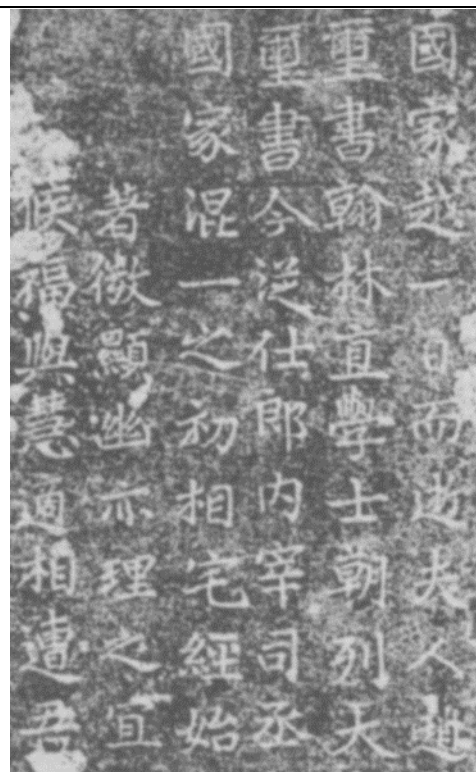 國家越一日而逝夫人趙
璽書翰林直學士朝列大
璽書今從仕郎内宰司丞
國家混一之初相宅經始
著微顯幽亦理之宜
侯福與慧適相遭吾